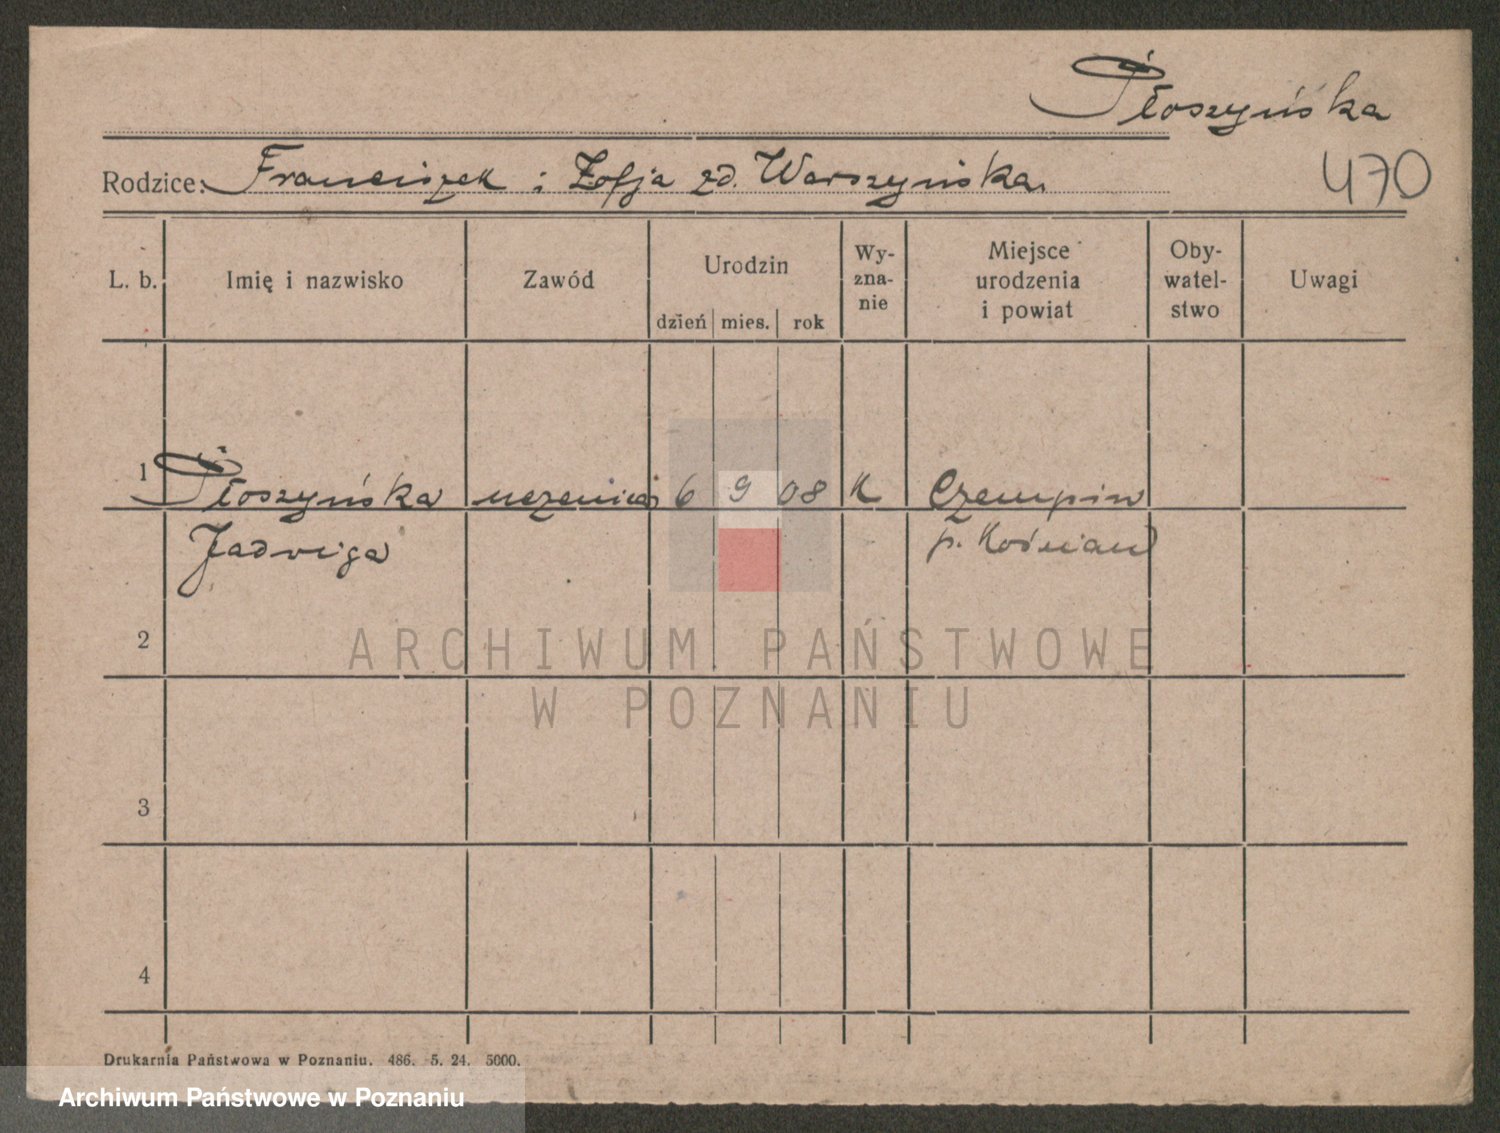 Płoszyńska
Rodzice: Franciszek i Zofja zd. Warszyńska.
470
L. b. Imię i nazwisko Zawód Urodzin dzień mies. rok Wy-zna-nie Miejsce urodzenia i powiat Oby-watel-stwo Uwagi
1 Płoszyńska uczenica 6 9 08 K Czempin
Jadwiga p. Kościan
2
ARCHIWUM PAŃSTWOWE
W POZNANIU
3
4
Drukarnia Państwowa w Poznaniu. 486. 5. 24. 5000.
Archiwum Państwowe w Poznaniu